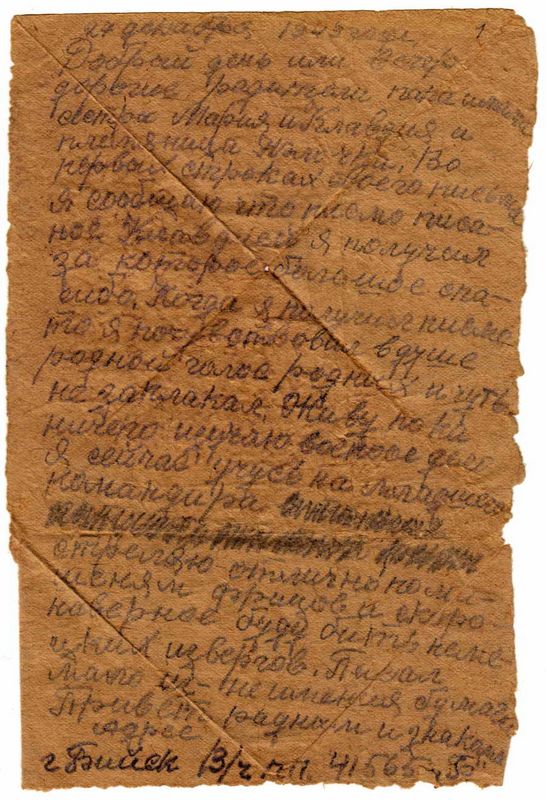 27 декабря 1943 года 1
Добрый день или вечер
дорогие родители папа мама
сестры Мария и Клавдия и
племяница Нэличка. Во
первых строках своего письма
я сообщаю что писмо писа-
ное Клавдией я получил
за которое большое спа-
сибо. Когда я получил писмо
то я почувствовал в душе
родной голос родных и чуть
не заплакал. Живу пока
ничего изучаю военное дело
Я сейчас учусь на младшего
командира
стреляю отлично по ми-
шеням фрицов и скоро
наверное буду бить неме-
цких извергов. Писал
мало из-неимения бумаги
Привет родным и знаком
Адрес
г. Бийск В/ч. п.п. 41565 "Б"